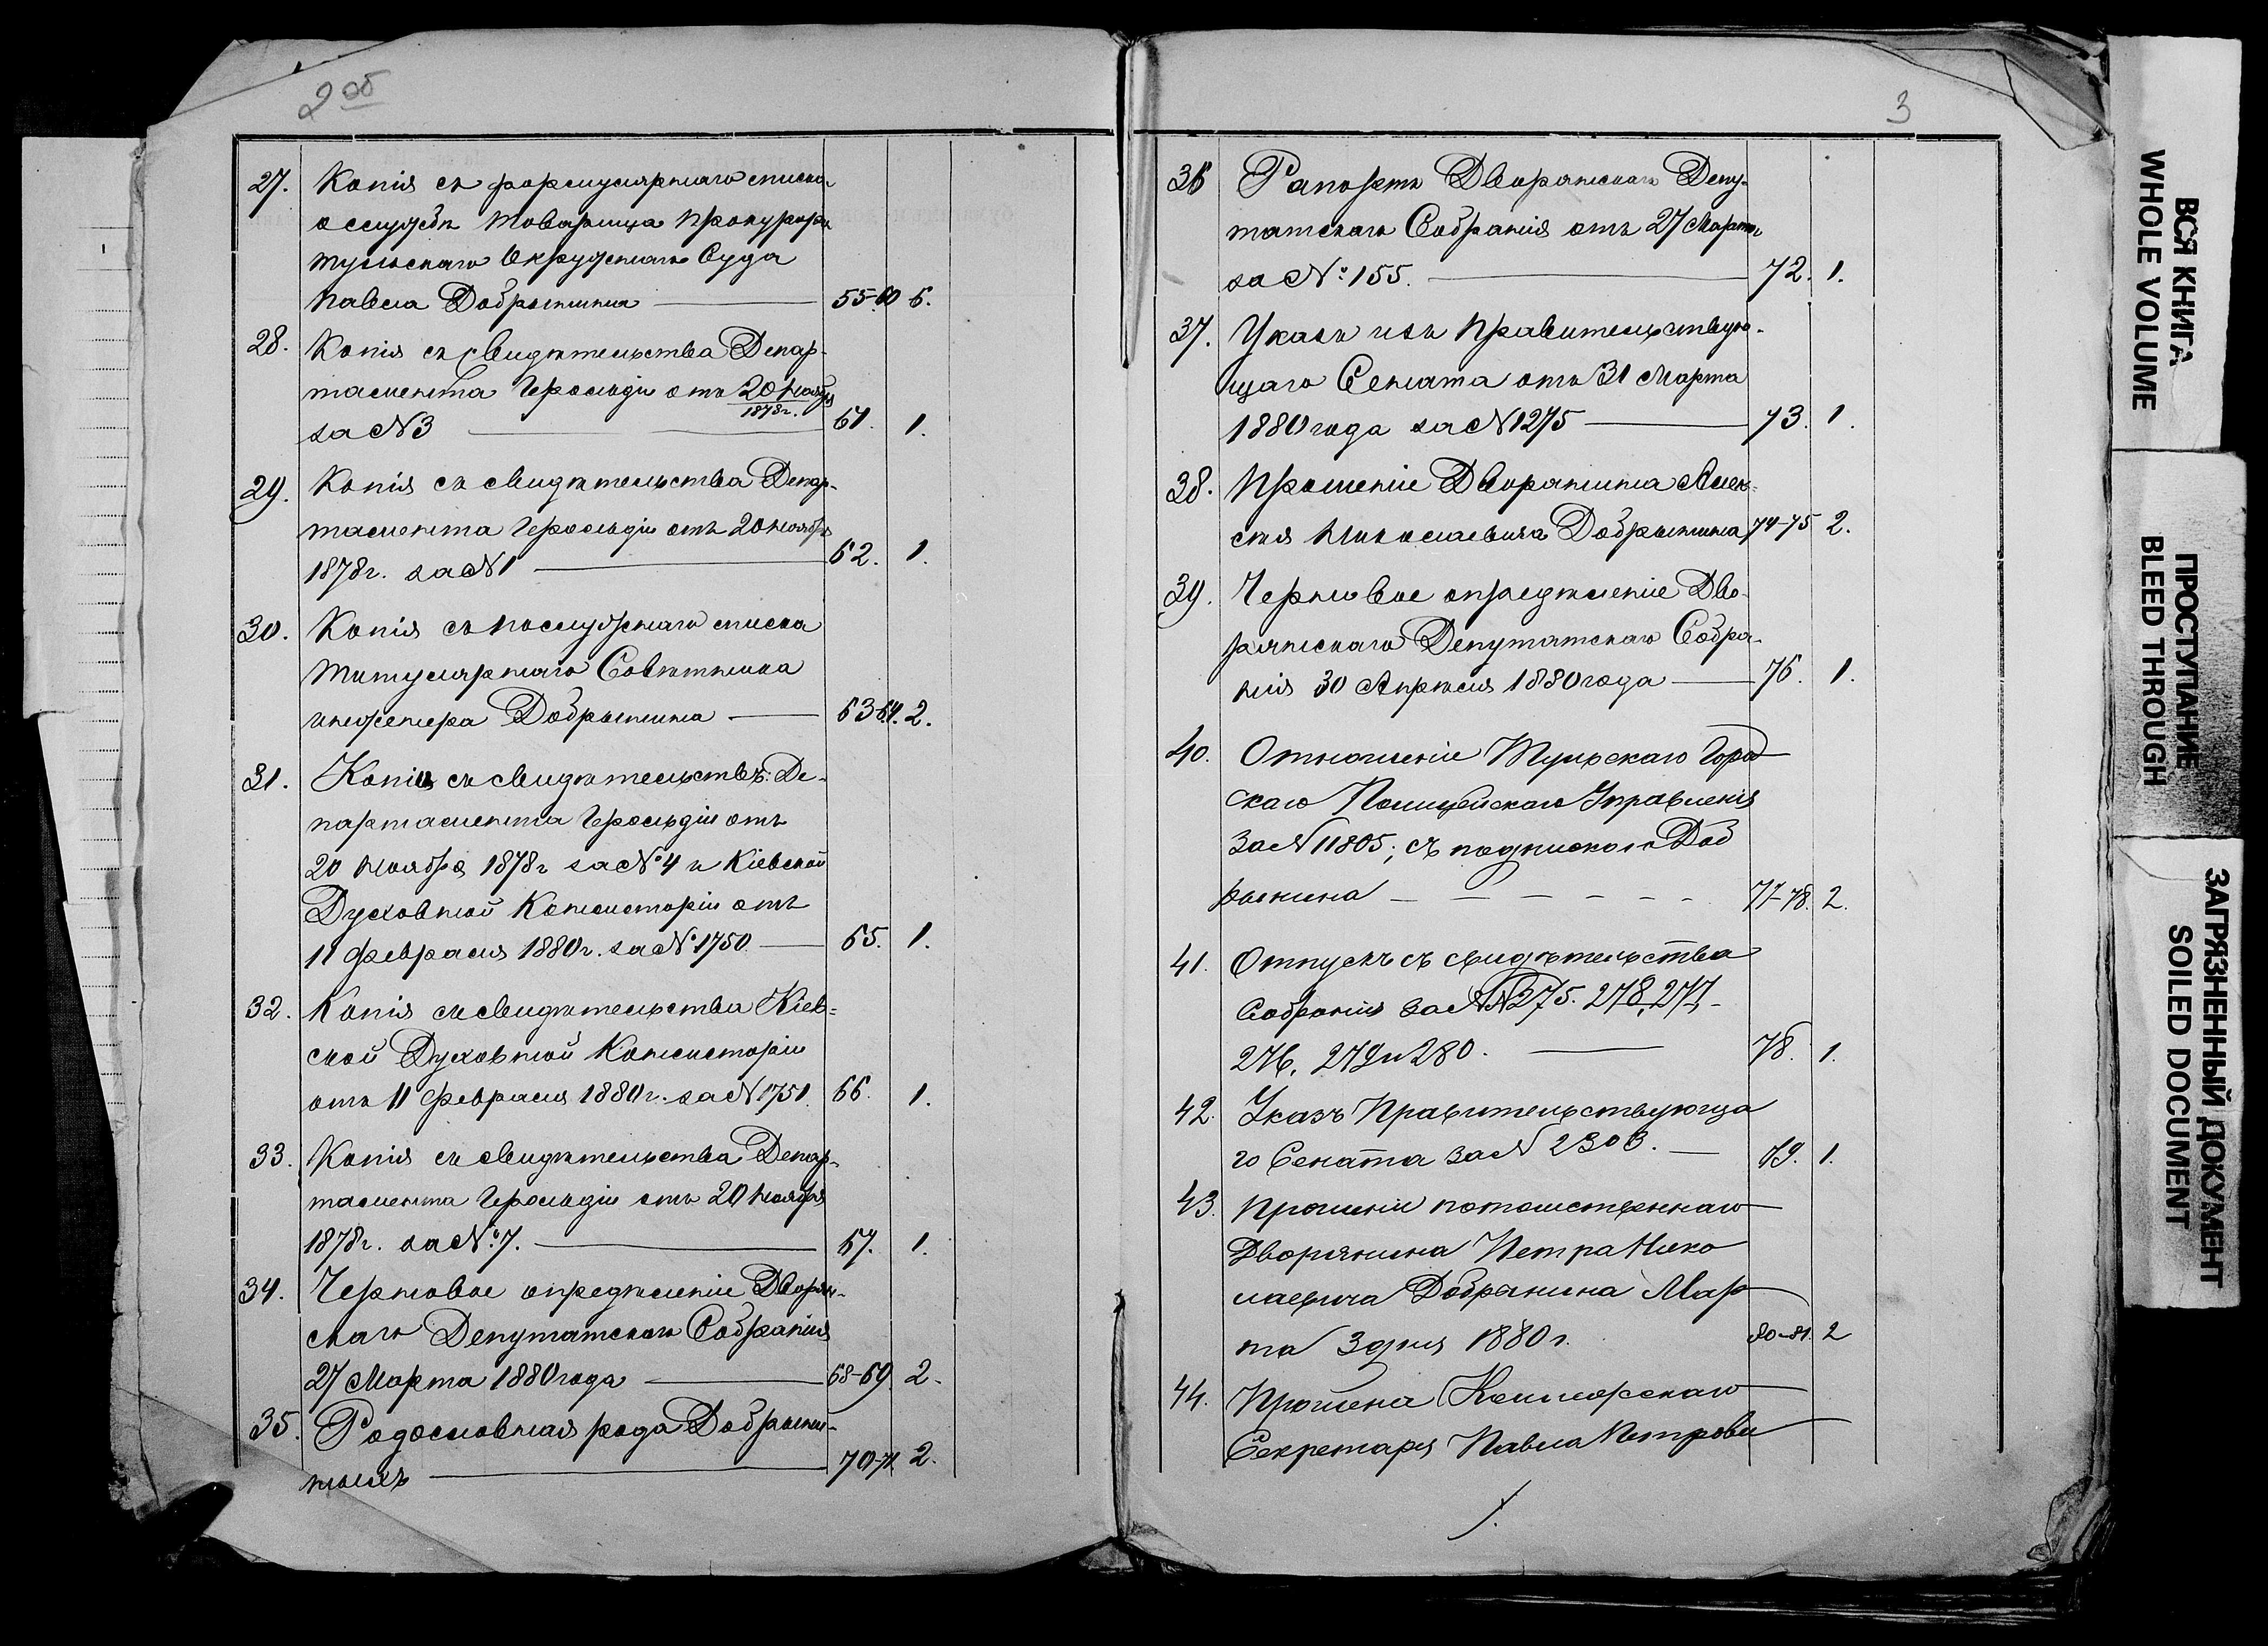 2 об
27. Копія съ формулярнаго списка
о службѣ товарища прокурора
тульскаго Окружнаго Суда
Павла Добрынина 55-60 6.
28. Копія съ свидѣтельства Депар-
тамента Герольдіи отъ 20 Ноября
1878 г.
за № 3 61. 1.
29. Копія съ свидѣтельства Депар-
тамента Герольдіи отъ 20 ноября
1878 г. за № 1 62. 1.
30. Копія съ послужнаго списка
титулярнаго Совѣтника
инженера Добрынина 63-64. 2.
31. Копіи съ свидѣтельствъ: Де-
партамента Герольдіи отъ
20 Ноября 1878 г за № 4 и Кіевской
Духовной Консисторіи отъ
11 февраля 1880 г. за № 1750 65. 1.
32. Копія съ свидѣтельства Кіев=
ской Духовной Консисторіи
отъ 11 февраля 1880 г. за № 1751 66. 1.
33. Копія съ свидѣтельства Депар-
тамента Герольдіи отъ 20 ноября
1878 г. за № 7. 67. 1.
34. Черновое опредѣленіе Дворян-
скаго Депутатскаго Собранія
27 Марта 1880 года 68-69. 2.
35. Родословная рода Добрыни-
ныхъ 70-71. 2.
3
36 Рапортъ Дворянскаго Депу-
татскаго Собранія отъ 27 Марта
за № 155. 72. 1.
37. Указъ изъ Правительствую-
щаго Сената отъ 31 Марта
1880 года за № 1275 73. 1.
38. Прошеніе Дворянина Алек-
сѣя Николаевича Добрынина 74-75 2.
39. Черновое опредѣленіе Дво-
рянскаго Депутатскаго Собра-
нія 30 Апрѣля 1880 года 76. 1.
40. Отношеніе Тульскаго Город
скаго Полицейскаго Управленія
за № 11805; съ подпискою Доб
рынина 77-78. 2.
41. Отпускъ съ свидѣтельства
Собранія за №№ 275. 278, 277,
276, 279 и 280. 78. 1.
42. Указъ Правительствующа
го Сената за № 2303. 79. 1.
43. Прошеніе потомственнаго
Дворянина Петра Нико
лаевича Добрынина Мар
та 3 дня 1880 г. 80-81. 2
44. Прошеніе Коллежскаго
Секретаря Павла Петрови
1.
ВСЯ КНИГА
WHOLE VOLUME
ПРОСТУПАНИЕ
BLEED THROUGH
ЗАГРЯЗНЕННЫЙ ДОКУМЕНТ
SOILED DOCUMENT